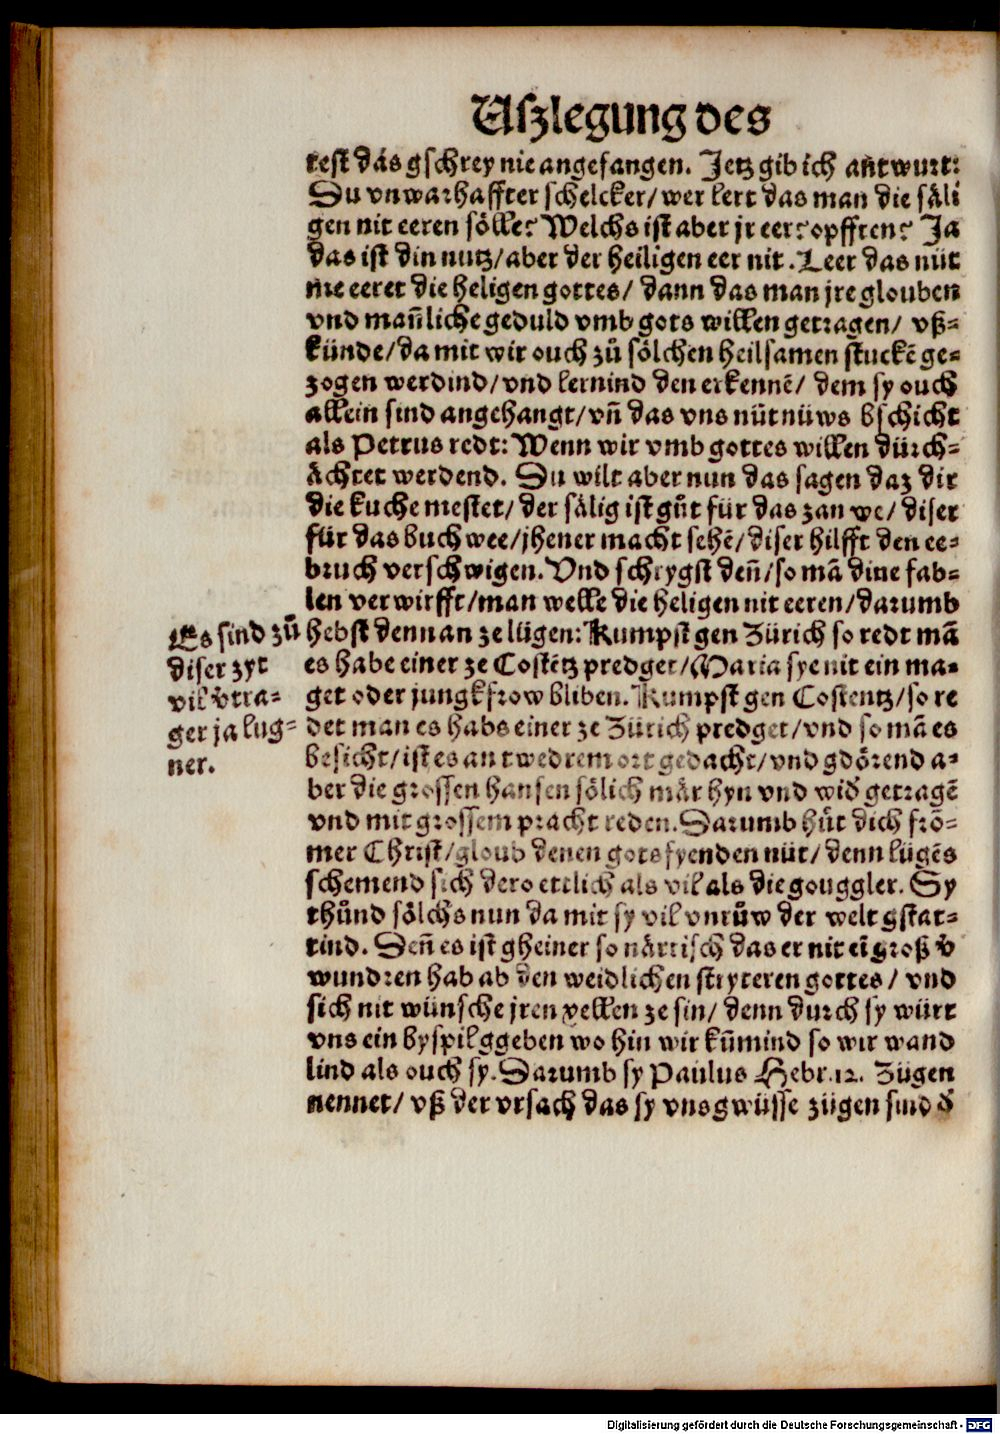 Uſzlegung des
teſt das gſchrey nie angefangen. Jetz gib ich antwurt:
Du vnwarhaffter ſchelcker/ wer lert das man die ſäli
gen nit eeren ſölle? Welchs iſt aber jr eer? opffren? Ja
das iſt din nutz/ aber der heiligen eer nit. Leer das nüt
me eeret die heligen gottes/ dann das man jre glouben
vnd mañliche geduld vmb gots willen getragen/ vß⸗
künde/ da mit wir ouch zů ſölchen heilſamen ſtuckē ge⸗
zogen werdind/ vnd lernind den erkennē/ dem ſy ouch
allein ſind angehangt/ vñ das vns nüt nüws bſchicht
als Petrus redt: Wenn wir vmb gottes willen dürch⸗
ächtet werdend. Du wilt aber nun das ſagen daz dir
die kuche meſtet/ der ſälig iſt gůt für das zan we/ diſer
für das buch wee/ jhener macht ſehē/ diſer hilfft den ee⸗
bruch verſchwigen. Vnd ſchrygſt deñ/ ſo mā dine fab⸗
len verwirfft/ man welle die heligen nit eeren/ darumb
hebſt denn an ze lügen: Kumpſt gen Zürich ſo redt mā
es habe einer ze Coſtētz predget/ Maria ſye nit ein ma⸗
get oder jungkfrow bliben. Kumpſt gen Coſtentz/ ſo re
det man es habs einer ze Zürich predget/ vnd ſo mā es
beſicht/ iſt es an twedrem ort gedacht/ vnd gdörend a⸗
ber die groſſen hanſen ſölich mär hyn vnd wid̓ getragē
vnd mit groſſem pracht reden. Darumb hůt dich frō⸗
mer Chriſt/ gloub denen gots fyenden nüt/ denn lügēs
ſchemend ſich dero ettlich als vil als die gouggler. Sy
thůnd ſölchs nun da mit ſy vil vnrůw der welt gſtat⸗
tind. Deñ es iſt gheiner ſo närriſch das er nit eī groß v̓
wundren hab ab den weidlichen ſtryteren gottes/ vnd
ſich nit wünſche jren gellen ze ſin/ denn durch ſy würt
vns ein byſpil ggeben wo hin wir kūmind ſo wir wand
lind als ouch ſy. Darumb ſy Paulus Hebr. 12. Zügen
nennet/ vß der vrſach das ſy vns gwüſſe zügen ſind d̓
Es ſind zů
diſer zyt
vil v̓tra⸗
ger ja lug⸗
ner.
Digitalisierung gefördert durch die Deutsche Forschungsgemeinschaft - DFG